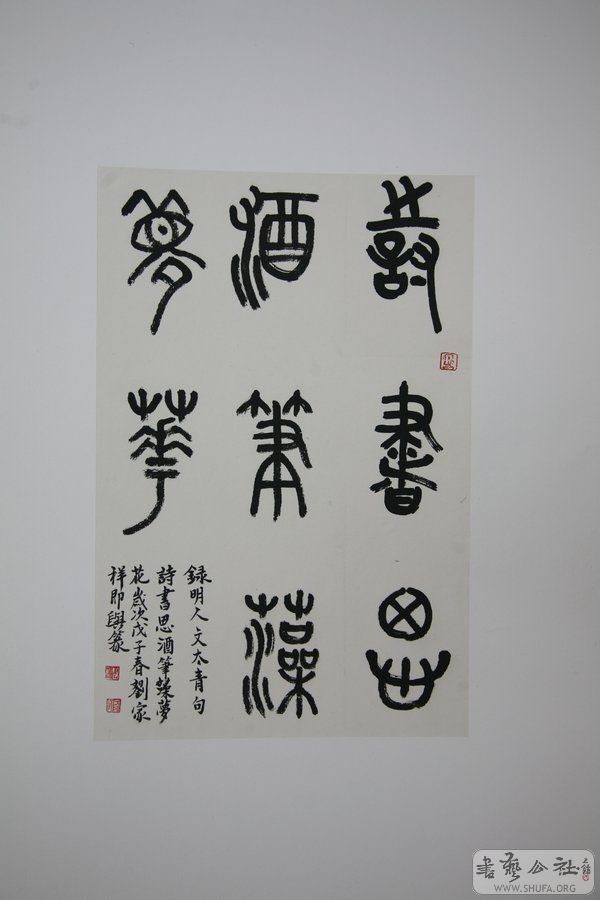 詩書思
酒筆藻
夢華
録明人文太青句
詩書思酒筆藻夢
花歲次戊子春劉家
祥即興篆
書藝公社
WWW.SHUFA.ORG